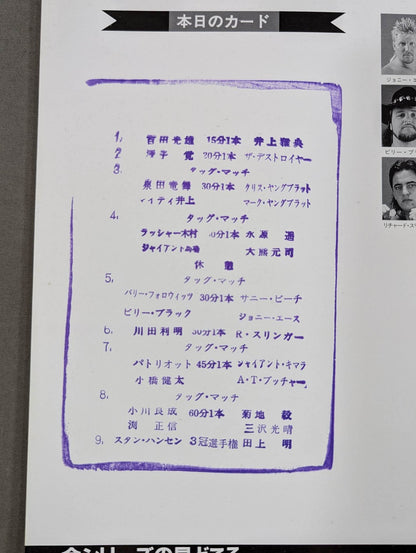 本日のカード
1. 百田光雄 15分1本 井上雅央
2. 淳子 覚 20分1本 ザ・デストロイヤー
3. タッグ・マッチ
泉田竜舞 30分1本 クリス・ヤングブラット
マイティ井上 マーク・ヤングブラット
4. タッグ・マッチ
ラッシャー木村 30分1本 永源 遥
ジャイアント馬場 大熊元司
休憩
5. タッグ・マッチ
バリー・フォロウィッツ 30分1本 サニー・ビーチ
ビリー・ブラック ジョニー・エース
6. 川田利明 30分1本 R・スリンガー
7. タッグ・マッチ
パトリオット 45分1本 ジャイアント・キマラ
小橋健太 A・T・ブッチャー
8. タッグ・マッチ
小川良成 60分1本 菊地 毅
渕 正信 三沢光晴
9. スタン・ハンセン 3冠選手権 田上 明
ジョニー・
ビリー・ブ
リチャード・ス